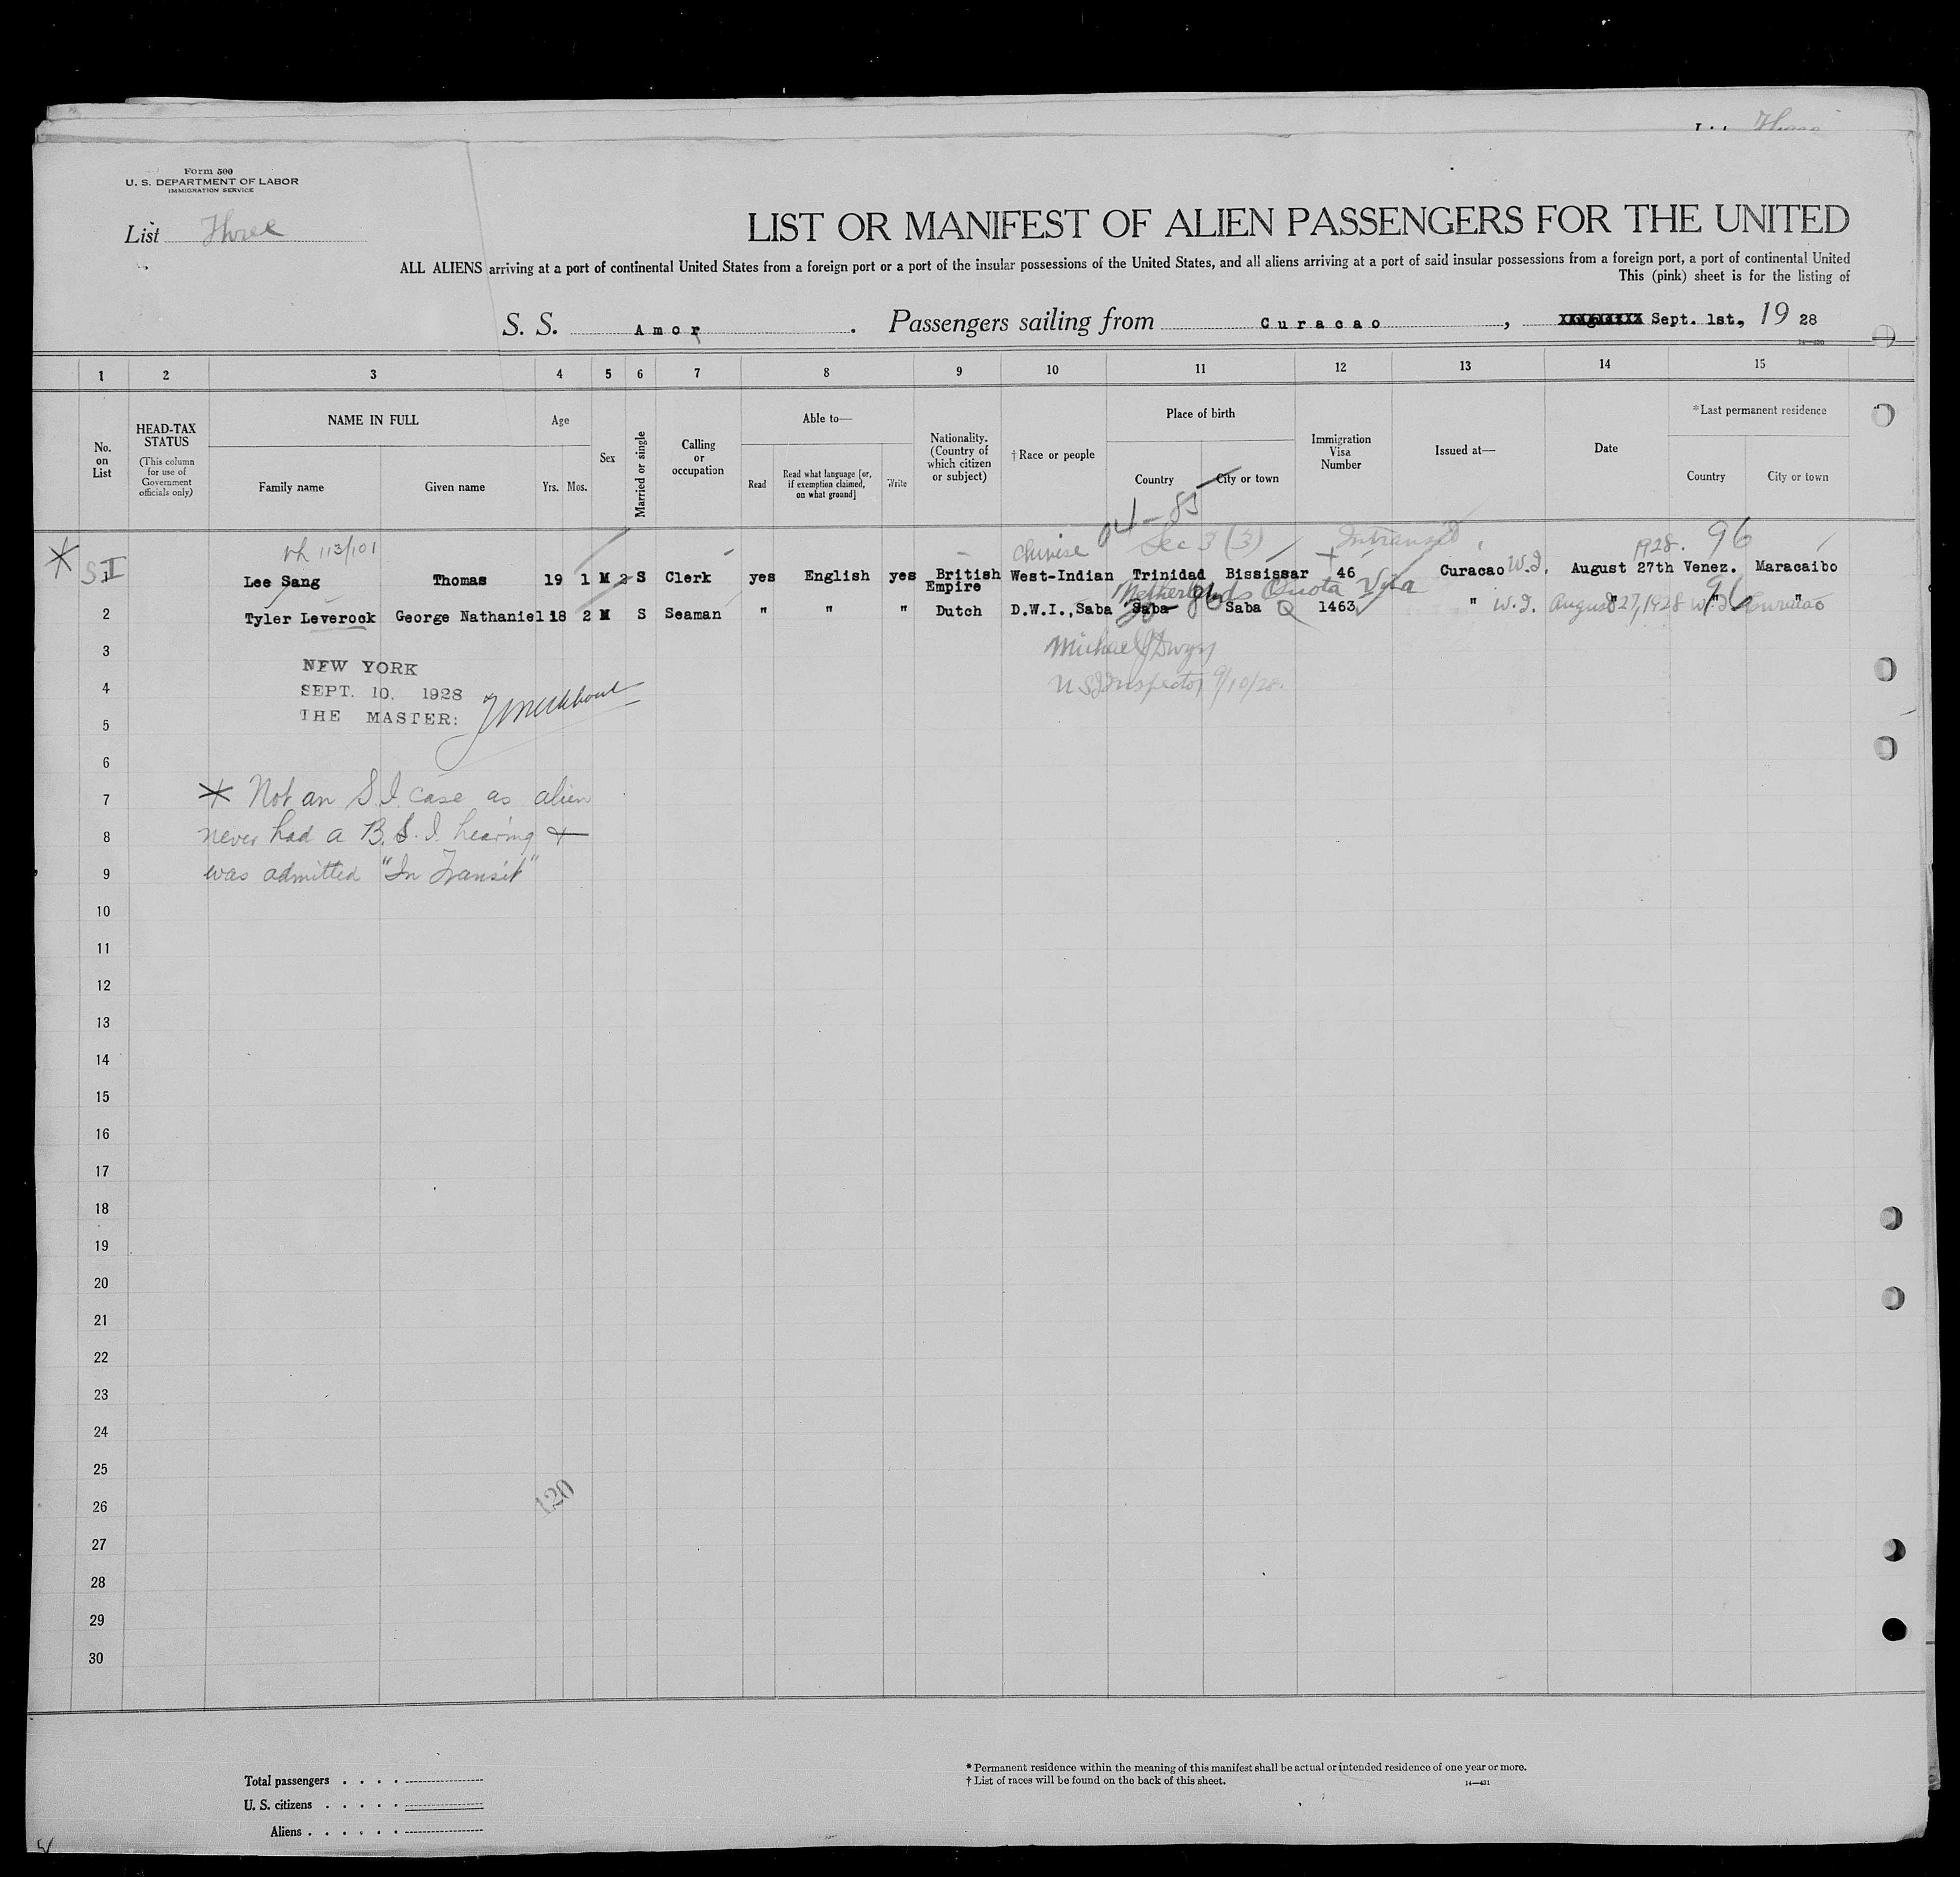 Form 500
U. S. DEPARTMENT OF LABOR
IMMIGRATION SERVICE
List Three
LIST OR MANIFEST OF ALIEN PASSENGERS FOR THE UNITED
ALL ALIENS arriving at a port of continental United States from a foreign port or a port of the insular possessions of the United States, and all aliens arriving at a port of said insular possessions from a foreign port, a port of continental United
This (pink) sheet is for the listing of
S. S. Amor . Passengers sailing from Curacao , Sept. 1st, 19 28
1 2 3 4 5 6 7 8 9 10 11 12 13 14 15
No. on List
HEAD-TAX STATUS
(This column for use of Government officials only)
NAME IN FULL
Family name Given name
Age
Yrs. Mos.
Sex
Married or single
Calling or occupation
Able to—
Read
Read what language [or, if exemption claimed, on what ground]
Write
Nationality. (Country of which citizen or subject)
†Race or people
Place of birth
Country City or town
Immigration Visa Number
Issued at—
Date
*Last permanent residence
Country City or town
04-85
113/101 Chinese Sec 3 (3) In transit 1928. 96
* SI 1 Lee Sang Thomas 19 1 M S Clerk yes English yes British Empire West-Indian Trinidad Bississar 46 Curacao W.I. August 27th Venez. Maracaibo
Netherlands Quota Visa
2 Tyler Leverock George Nathaniel 18 2 M S Seaman " " " Dutch D.W.I.,Saba Saba Saba Q 1463 " W.I. August 27, 1928 W.I. 96 Curacao
3 Michael J Dwyer
NEW YORK
4 U S I Inspector 9/10/28.
SEPT. 10, 1928
5 THE MASTER:
6
7 * Not an S.I. case as alien
8 never had a B.S.I. hearing +
9 was admitted "In Transit"
10
11
12
13
14
15
16
17
18
19
20
21
22
23
24
25
26
120
27
28
29
30
Total passengers . . . .
U. S. citizens . . . . .
Aliens . . . . . .
* Permanent residence within the meaning of this manifest shall be actual or intended residence of one year or more.
† List of races will be found on the back of this sheet.
14—431